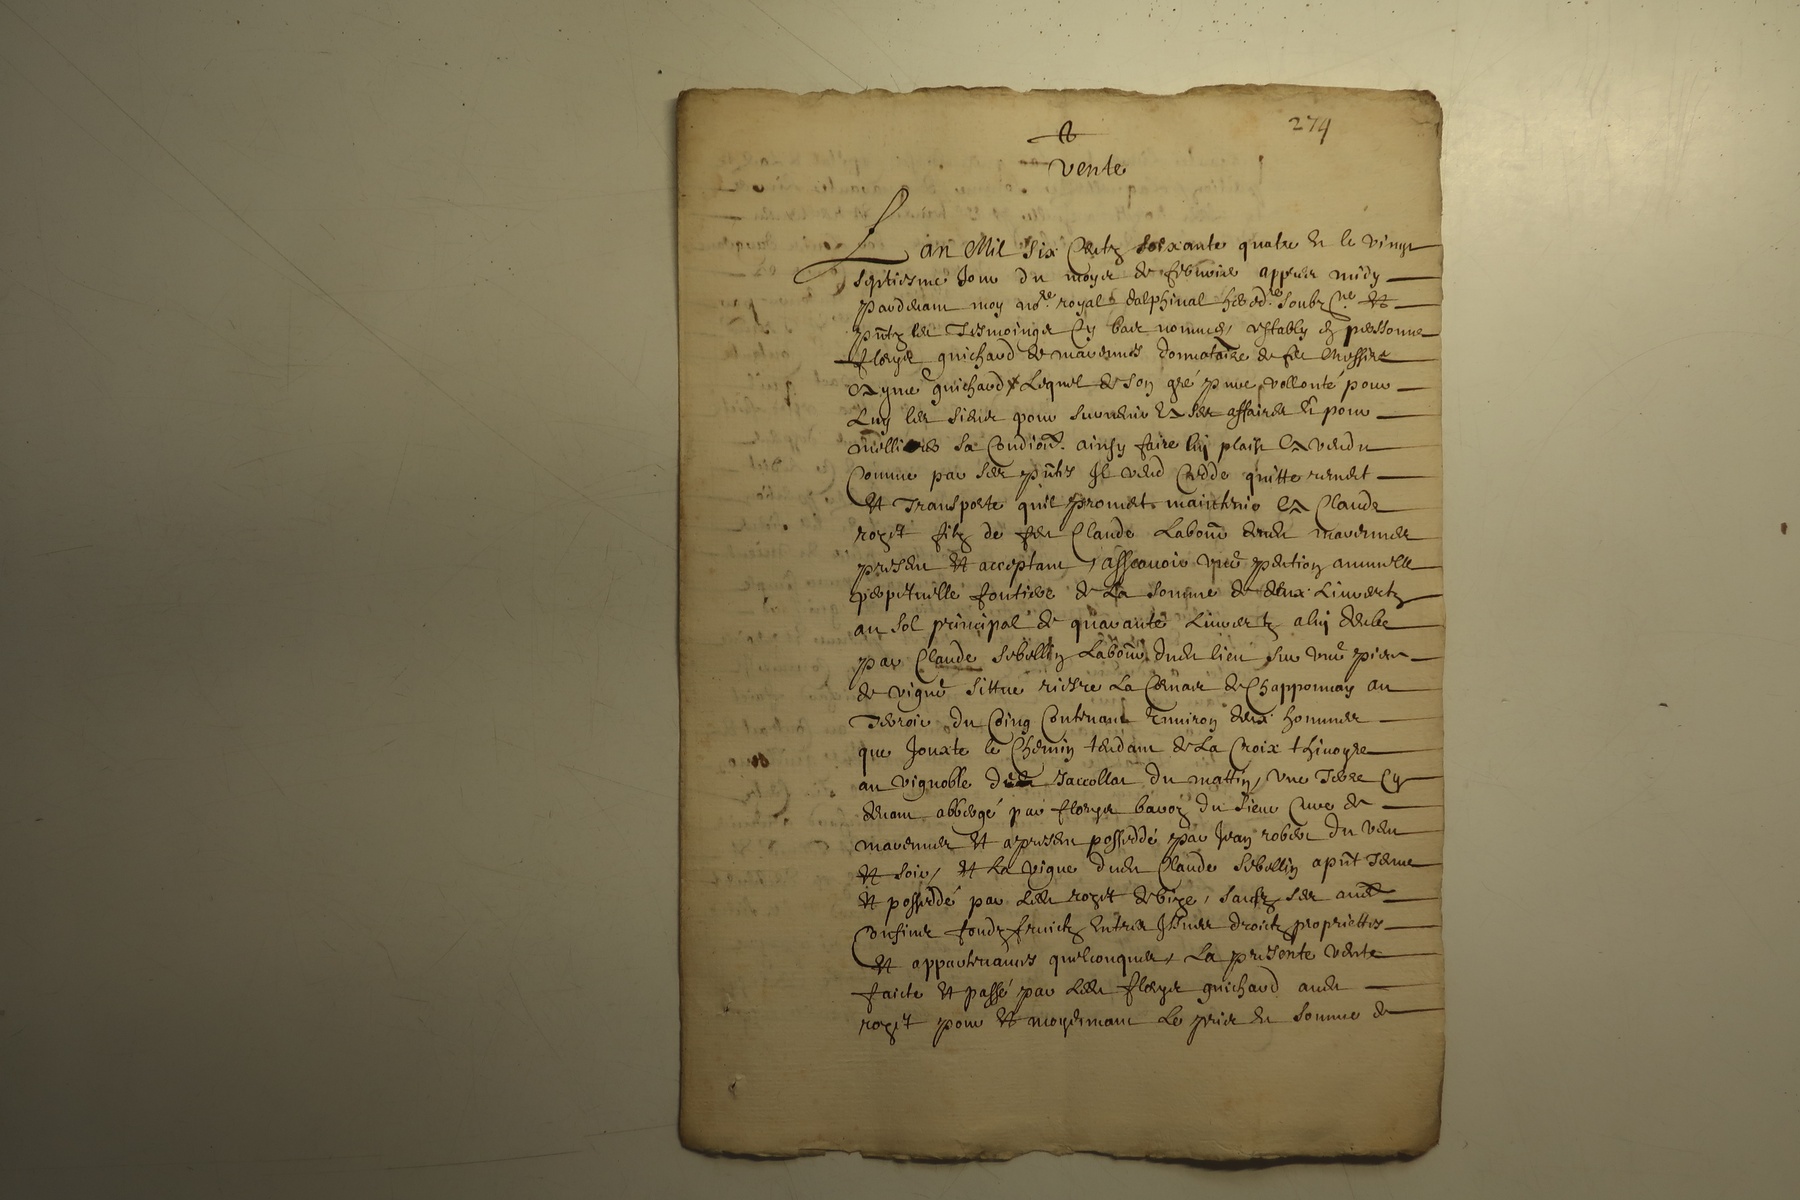 274
Vente
L an Mil six Centz soixante quatre et le vingt
septiesme Jour du moys de febvrier appres midy
pardevant moy no.re royal dalphinal hered.re soubz.ne et
pntz les Tesmoings cy bas nommes, estably en personne
fleurys guichard de marennes donnataire de feu Messire
Ayme guichard Lequel de son gré pure vollonté pour
Luy les siens pour survenir a ses affaires et pour
sa Condion. ainsy faire luy plaist a vendu
Comme par ses pntes Il vend Cedde quitte remet
et Transporte quil promet maintenir a Claude
roget filz de feu Claude Labour dudit marennes
present et acceptant, assavoir une pention annuelle
perpetuelle fontiere de La somme de deux Livvertz
au sol principal de quarante Livvertz a luy deube
par Claude Sebellin Labour dudit lieu sur une piece
de vigne sittue riesre La Cernas de Chapponnay au
Terroir du Coing Contenant Environ deux hommes
que Jouxte le Chemin tendant de La Croix thivoyre
au vignoble Jaccollat du mattin, une Terre Cy
devant abbergé par fleurys du sieur Cure de
marennes et apresent possedé par Jean robert du vent
et soir, et La vigne dudit Claude Sebellin apnt Tenue
et possedé par Ledit roget de bize, saufz ses aultres
Confins fondz fruictz Entres Issues droictz propriettes
et appartenances quelconques, La presente vente
faicte et passé par Ledit fleurys guichard audit
roget pour et moyennant Le prix et somme de